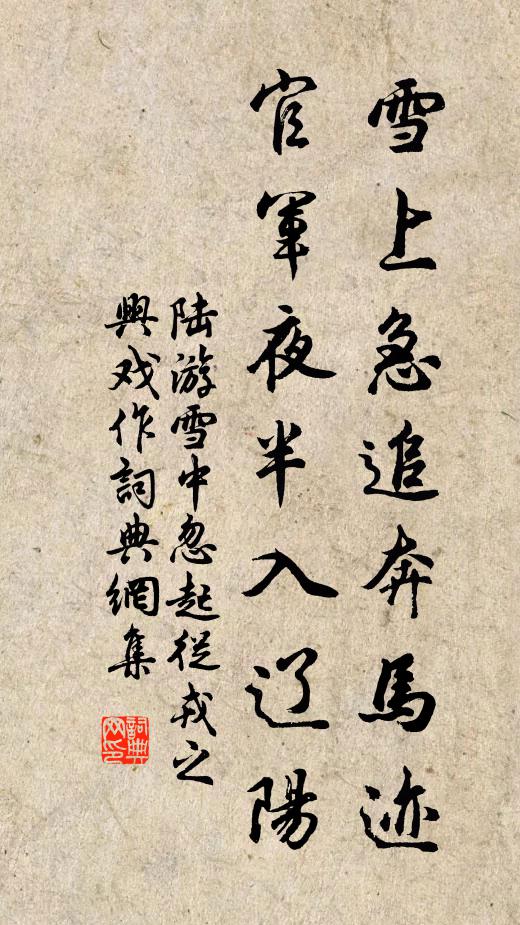 雪上急追奔馬迹
官軍夜半入辽陽
陆游雪中忽起從戎之
興戏作詞典網集
詞典网印